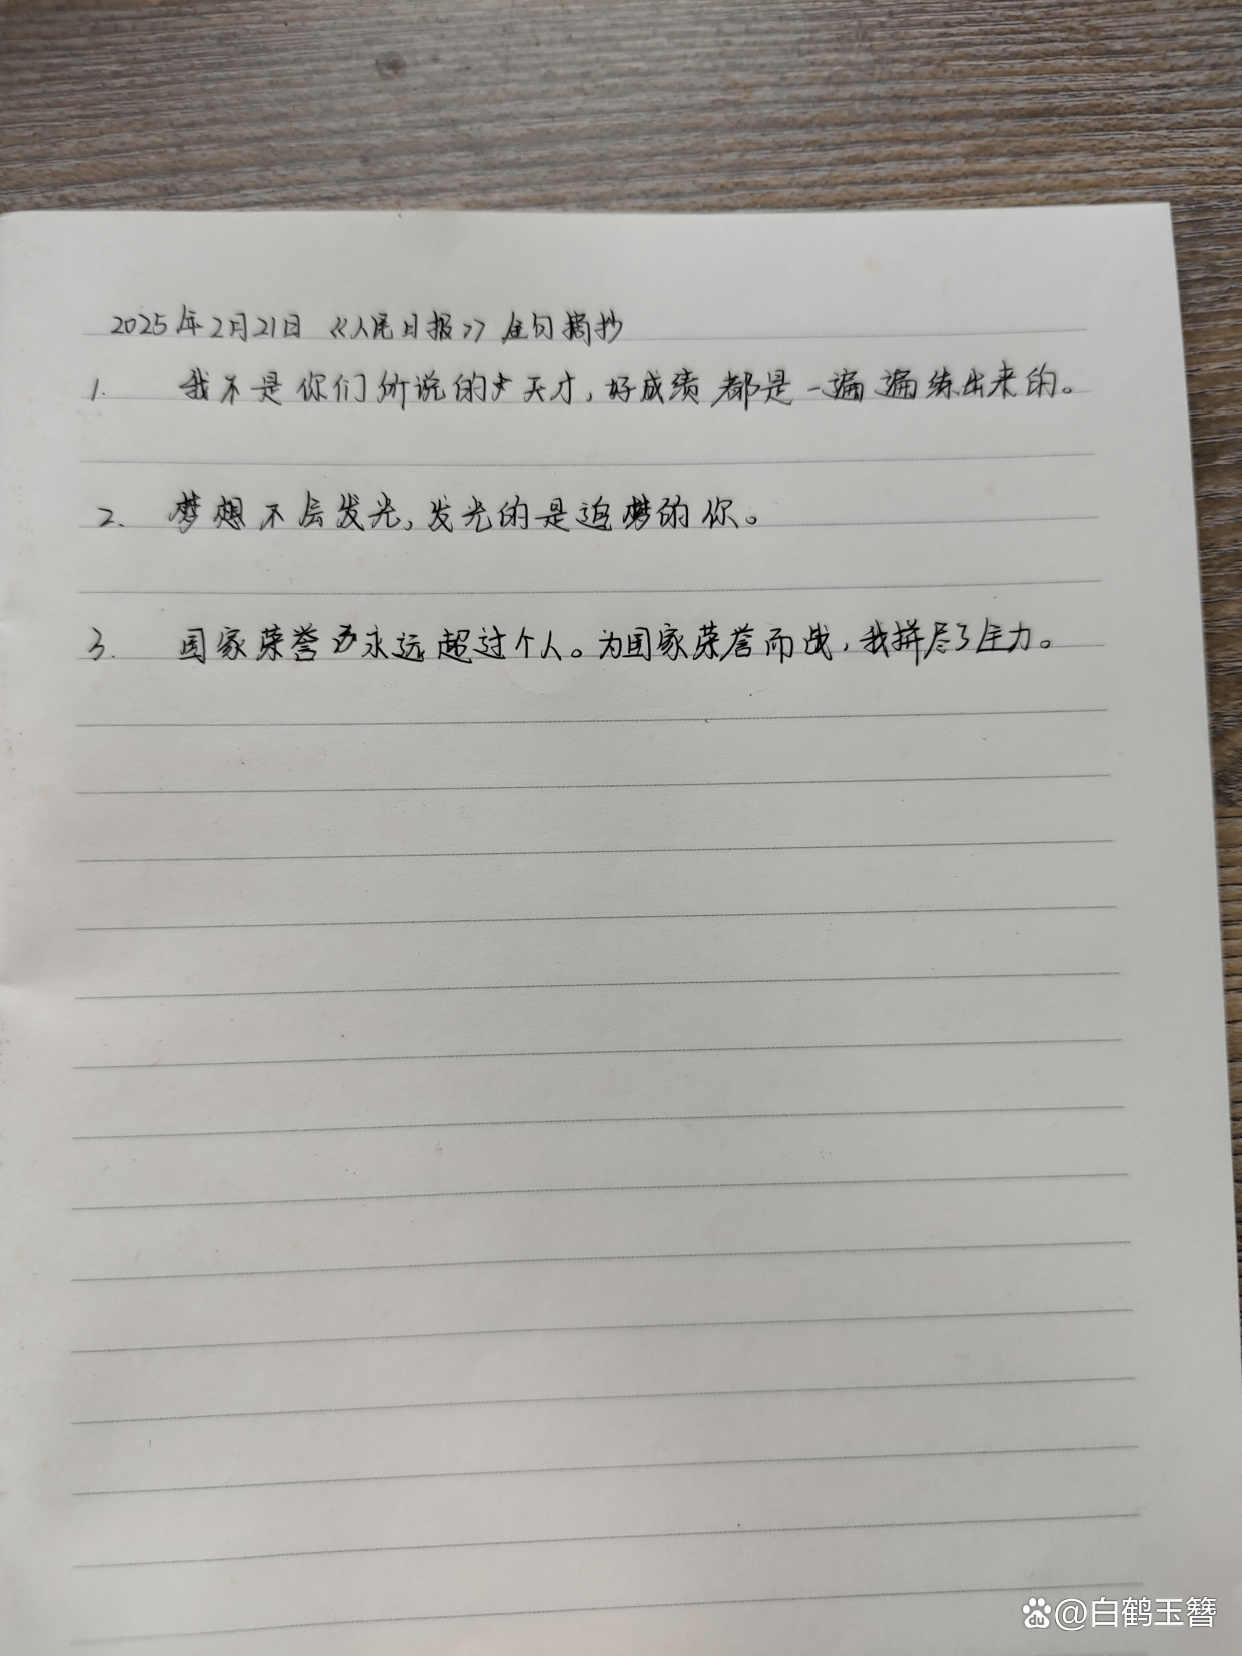 2025年2月21日《人民日报》金句摘抄
1. 我不是你们所说的天才，好成绩都是一遍遍练出来的。
2. 梦想不会发光，发光的是追梦的你。
3. 国家荣誉永远超过个人。为国家荣誉而战，我拼尽了全力。
du @白鹤玉簪